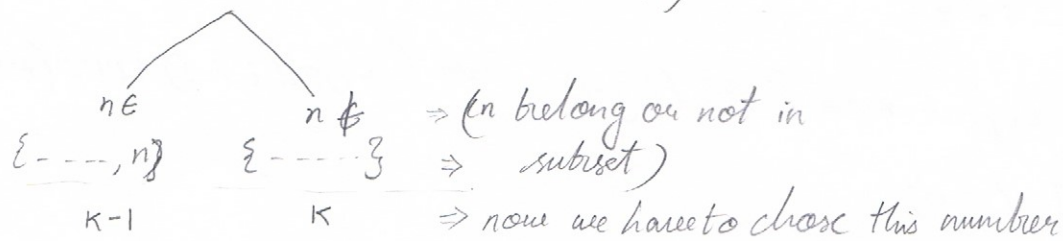 n ∈ n ∉ ⇒ (n belong or not in
{ - - - - , n} { - - - - - } ⇒ subset)
K-1 K ⇒ now we have to chose this number